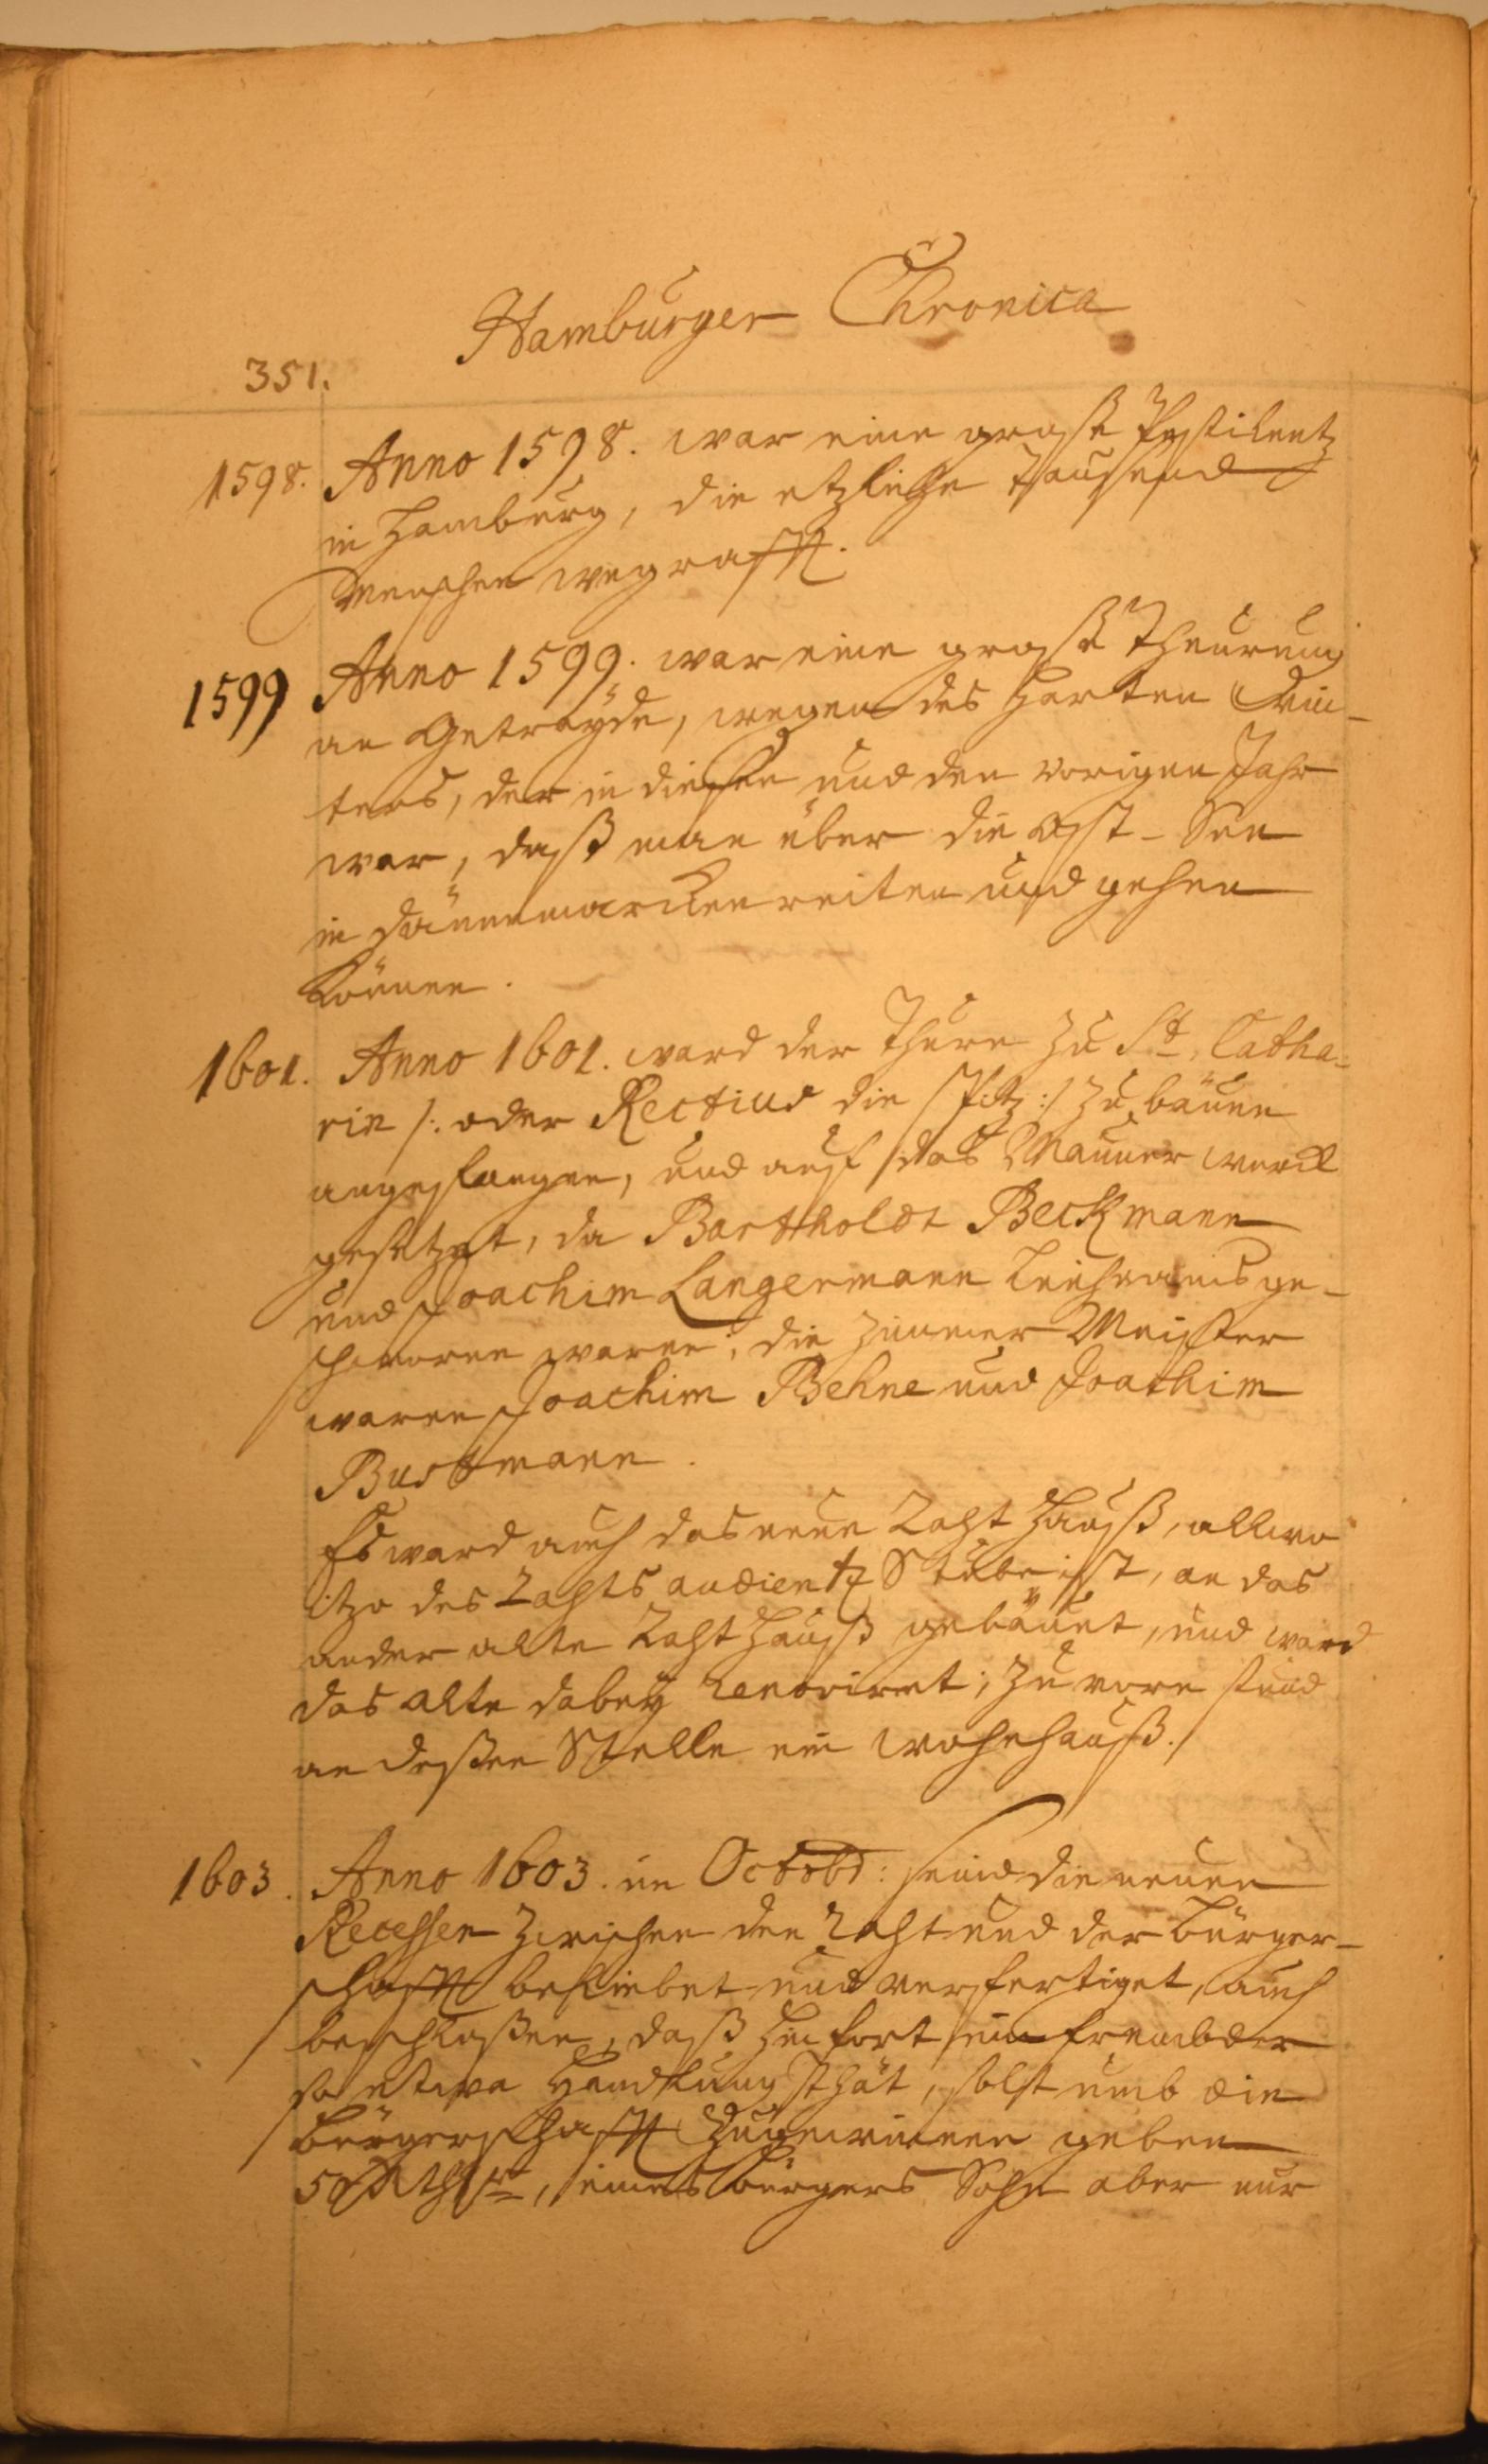 Hamburger Chronica
351.
1598. Anno 1598. war eine große Pestilentz
in Hamburg, die etzliche Tausend
Menschen wegrafft.
1599 Anno 1599. war eine große Theurung
an Getrayde, wegen des harten Win-
ters, der in diesen und den vorigen Jahr
war, daß man über die Ost-See
in Dännemarcken reiten und gehen
können.
1601. Anno 1601. ward der Thurn zu St. Catha-
rin /: oder Rectius die Spitz :/ zu bauen
angefangen, und auf das Mauer werck
gesetzet, da Bartholdt Beckmann
und Joachim Langermann Leichnams ge-
schworen waren; die Zimmer Meister
waren Joachim Behne und Joachim
Bustmann.
Es ward auch das neue Raht Hauß, allwo
itzo des Rahts audientz Stube ist, an das
ander alte Raht Hauß gebäuet, und ward
das alte dabey renoviret; zu vorn stund
an deßen Stelle ein Wohnhauß.
1603. Anno 1603. im Octobr: seind die neuen
Recessen zwischen den Raht und der Bürger-
schafft beliebet und verfertiget, auch
beschloßen, daß hinfort ein frembder
so etwa Handlung thät, solt umb die
Bürgerschafft zugewinnen geben
50 Rthlr, eines Bürgers Sohn aber nur